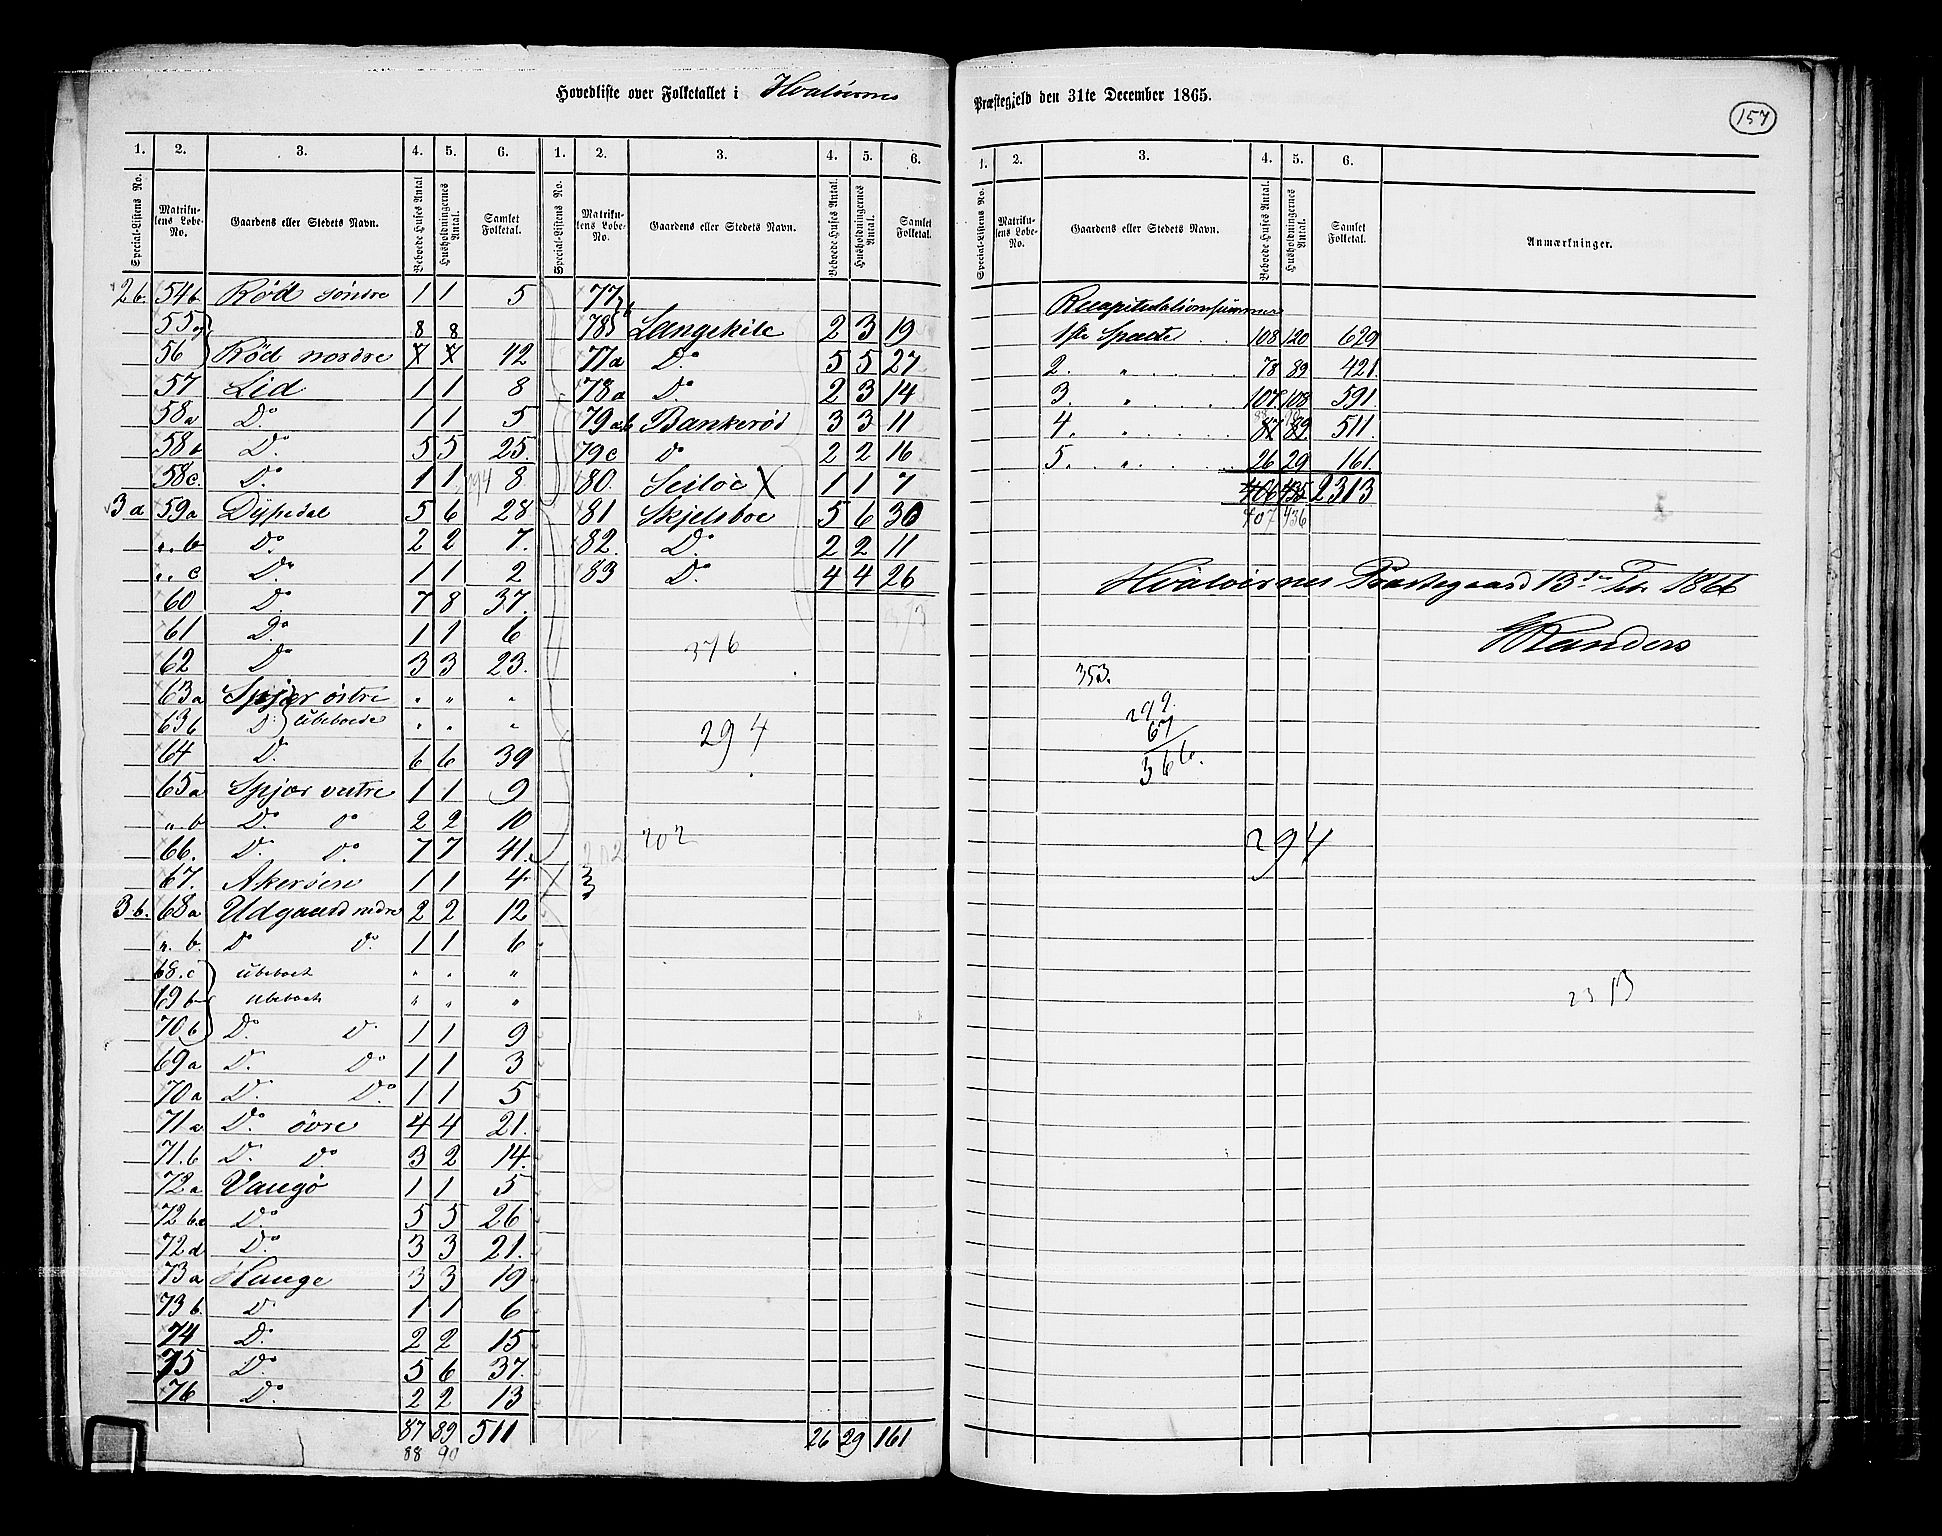 Hovedliste over Folketallet i Hvaløernes
Præstegjeld den 31te December 1865.
157
1. 2. 3. 4. 5. 6. 1. 2. 3. 4. 5. 6.
Special-Listens No. Matrikulens Løbe-No. Gaardens eller Stedets Navn. Beboede Huses Antal Husholdningernes Antal. Samlet Folketal. Special-Listens No. Matrikulens Løbe-No. Gaardens eller Stedets Navn. Beboede Huses Antal. Husholdningernes Antal. Samlet Folketal.
2b. 54b Rød søndre 1 1 5
55 og 8 8
56 Rød nordre 7 7 42
57 Lid 1 1 8
58a Do 1 1 5
58b Do 5 5 25.
58c. Do 1 1 8
294
3a 59a Dypedal 5 6 28
„ b Do 2 2 7.
„ c Do 1 1 2
60 Do 7 8 37.
61 Do 1 1 6
62 Do 3 3 23.
63a Spjær østre „ „ „
63b D. ubeboede „ „ „
64 D. 6 6 39
65a Spjær vestre 1 1 9
„ b Do do 2 2 10
66. D. Do. 7 7 41.
67. Akerøen 1 1 4.
3b. 68a Udgaard nedre 2 2 12
„ b. Do Do. 1 1 6
68.c ubeboet „ „ „
69b ubeboet „ „ „
70b Do. D. 1 1 9
69a D. Do 1 1 3
70a D. Do. 1 1 5
71a Do. øvre 4 4 21.
71.b Do. Do. 3 2 14.
72a Vaugø 1 1 5
72 bc Do 5 5 26
72d Do. 3 3 21.
73a Hauge 3 3 19
73b. D. 1 1 6
74 Do. 2 2 15
75 Do. 5 6 37.
76 Do. 2 2 13
87 89 511
88 90
77b
78b Langekile 2 3 19
77a Do. 5 5 27
78a Do. 2 3 14
79ab Bankerød 3 3 11
79c Do 2 2 16
80. Seiløe X 1 1 7
81 Skjelsboe 5 6 30
82. Do. 2 2 11
83 Do. 4 4 26
373
376
294
202
202
26 29 161
1. 2. 3. 4. 5. 6.
Special-Listens No. Matrikulens Løbe-No. Gaardens eller Stedets Navn. Beboede Huses Antal. Husholdningernes Antal. Samlet Folketal. Anmærkninger.
Recapitulationssummer
1ste Spalte . . 108 120 629
2. „ . . . . 78 89 421.
3. „ . . . 107. 108 591.
4. „ . . . . 87 89 511.
5. „ . . . 26 29 161.
406 435 2313
407 436
Hvaløernes Præstegaard 13de Feb. 1866
353.
299.
67
366.
294